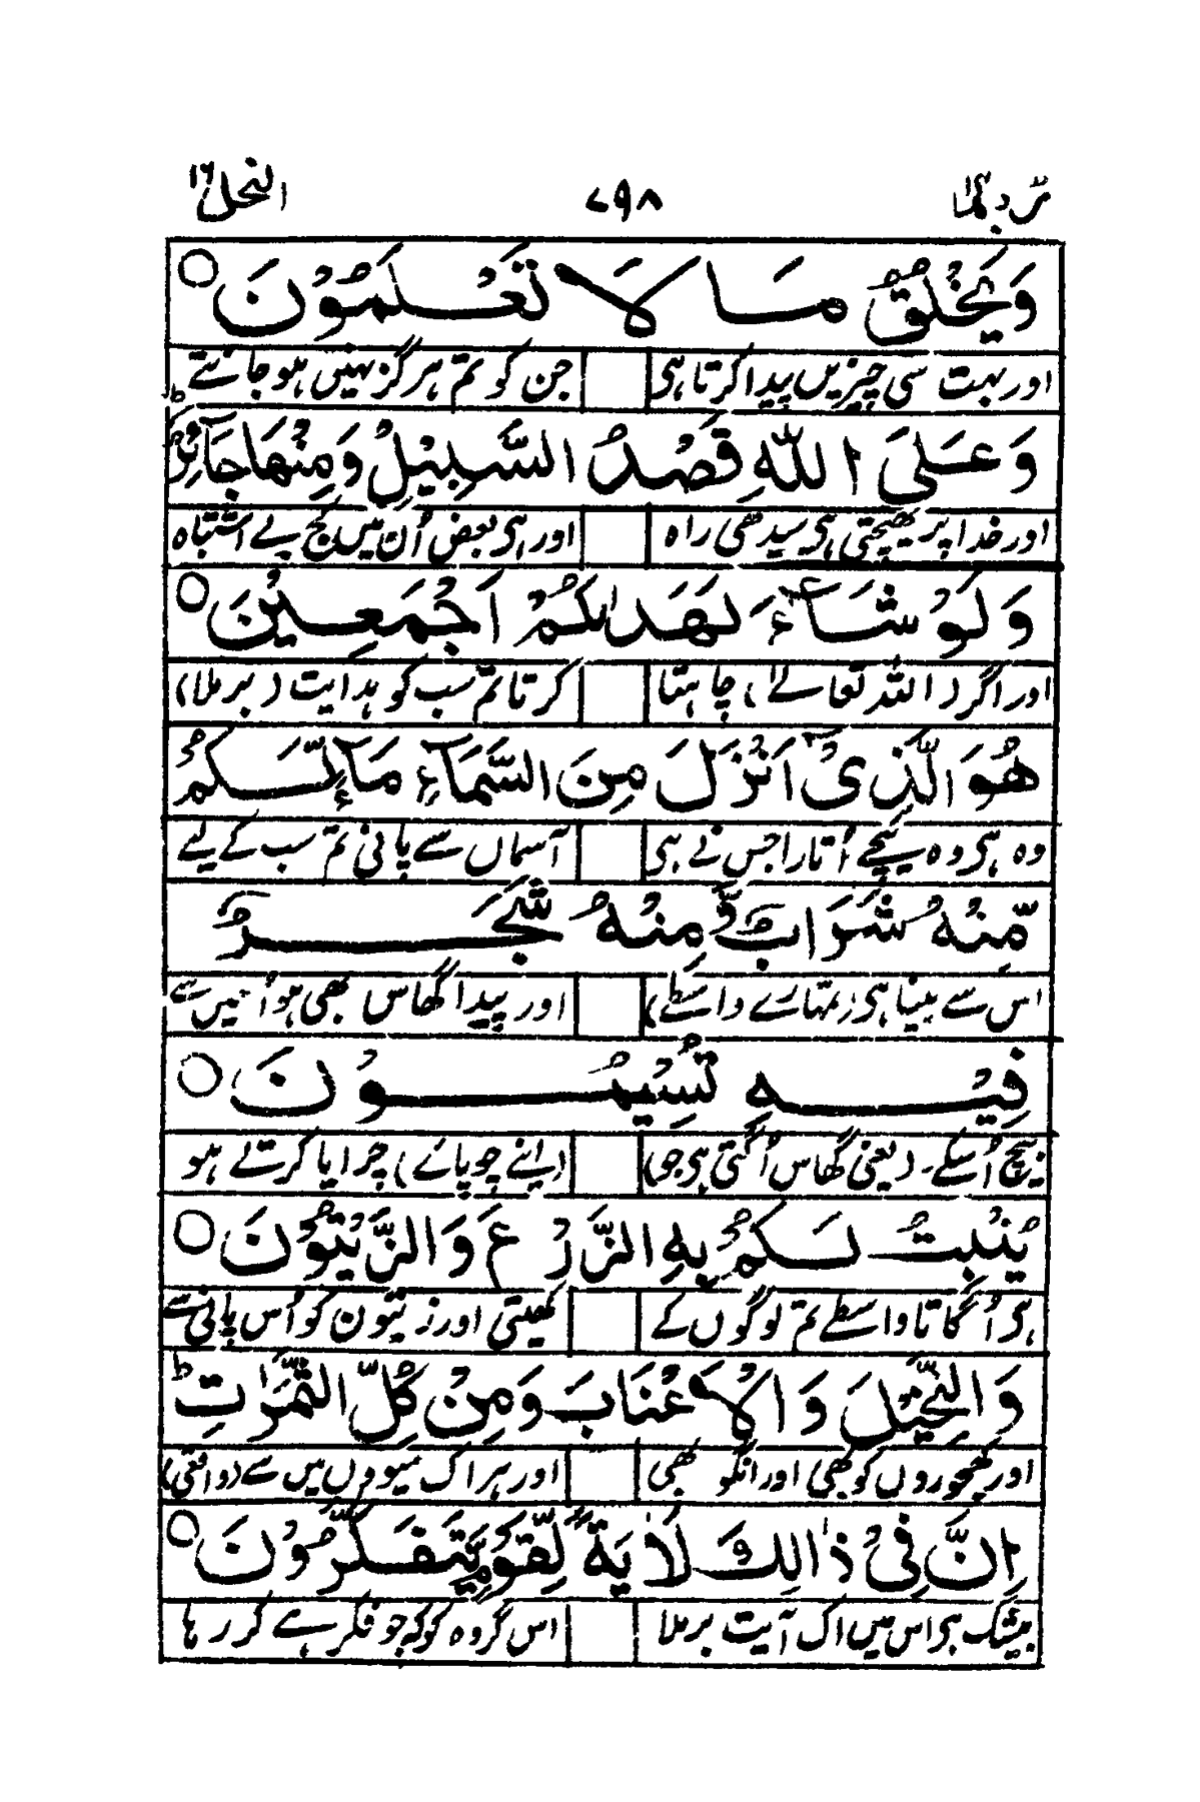 ربما ۱۴ ۷۹۸ النحل ۱۶
وَيَخْلُقُ مَا لَا تَعْلَمُوْنَ ○
اور بہت سی چیزیں پیدا کرتا ہی جن کو تم ہرگز نہیں ہو جانتے ط
وَعَلَى اللّٰهِ قَصْدُ السَّبِيْلِ وَمِنْهَا جَآئِرٌ
اور خدا پر پہنچتی ہی سیدھی راہ اور ہی بعض اُن میں کج بے اشتباہ
وَلَوْ شَآءَ لَهَدٰىكُمْ اَجْمَعِيْنَ ○
اور اگر (اللہ تعالےٰ) چاہتا کرتا تم سب کو ہدایت (برملا)
هُوَ الَّذِىْٓ اَنْزَلَ مِنَ السَّمَآءِ مَآءً لَّكُمْ
وہ ہی وہ نیچے اُتارا جس نے ہی آسماں سے پانی تم سب کے لیے
مِّنْهُ شَرَابٌ وَّمِنْهُ شَجَرٌ
اس سے پینا ہی (تمہارے واسطے) اور پیدا گھاس بھی ہو اُسمیں سے
فِيْهِ تُسِيْمُوْنَ ○
بیچ اُسکے۔ (یعنی گھاس اُگتی ہی جو) (اپنے چوپائے) چرایا کرتے ہو
يُنْبِتُ لَكُمْ بِهِ الزَّرْعَ وَالزَّيْتُوْنَ ○
ہی اُگاتا واسطے تم لوگوں کے کھیتی اور زیتون کو اُس پانی سے
وَالنَّخِيْلَ وَالْاَعْنَابَ وَمِنْ كُلِّ الثَّمَرٰتِ ط
اور کھجوروں کو بھی اور انگور بھی اور ہر اک میووں میں سے (واقعی)
اِنَّ فِىْ ذَالِكَ لَاٰيَةً لِّقَوْمٍ يَّتَفَكَّرُوْنَ ○
بیشک ہی اس میں اک آیت برملا اس گروہ کو کہ جو فکر ہے کر رہا